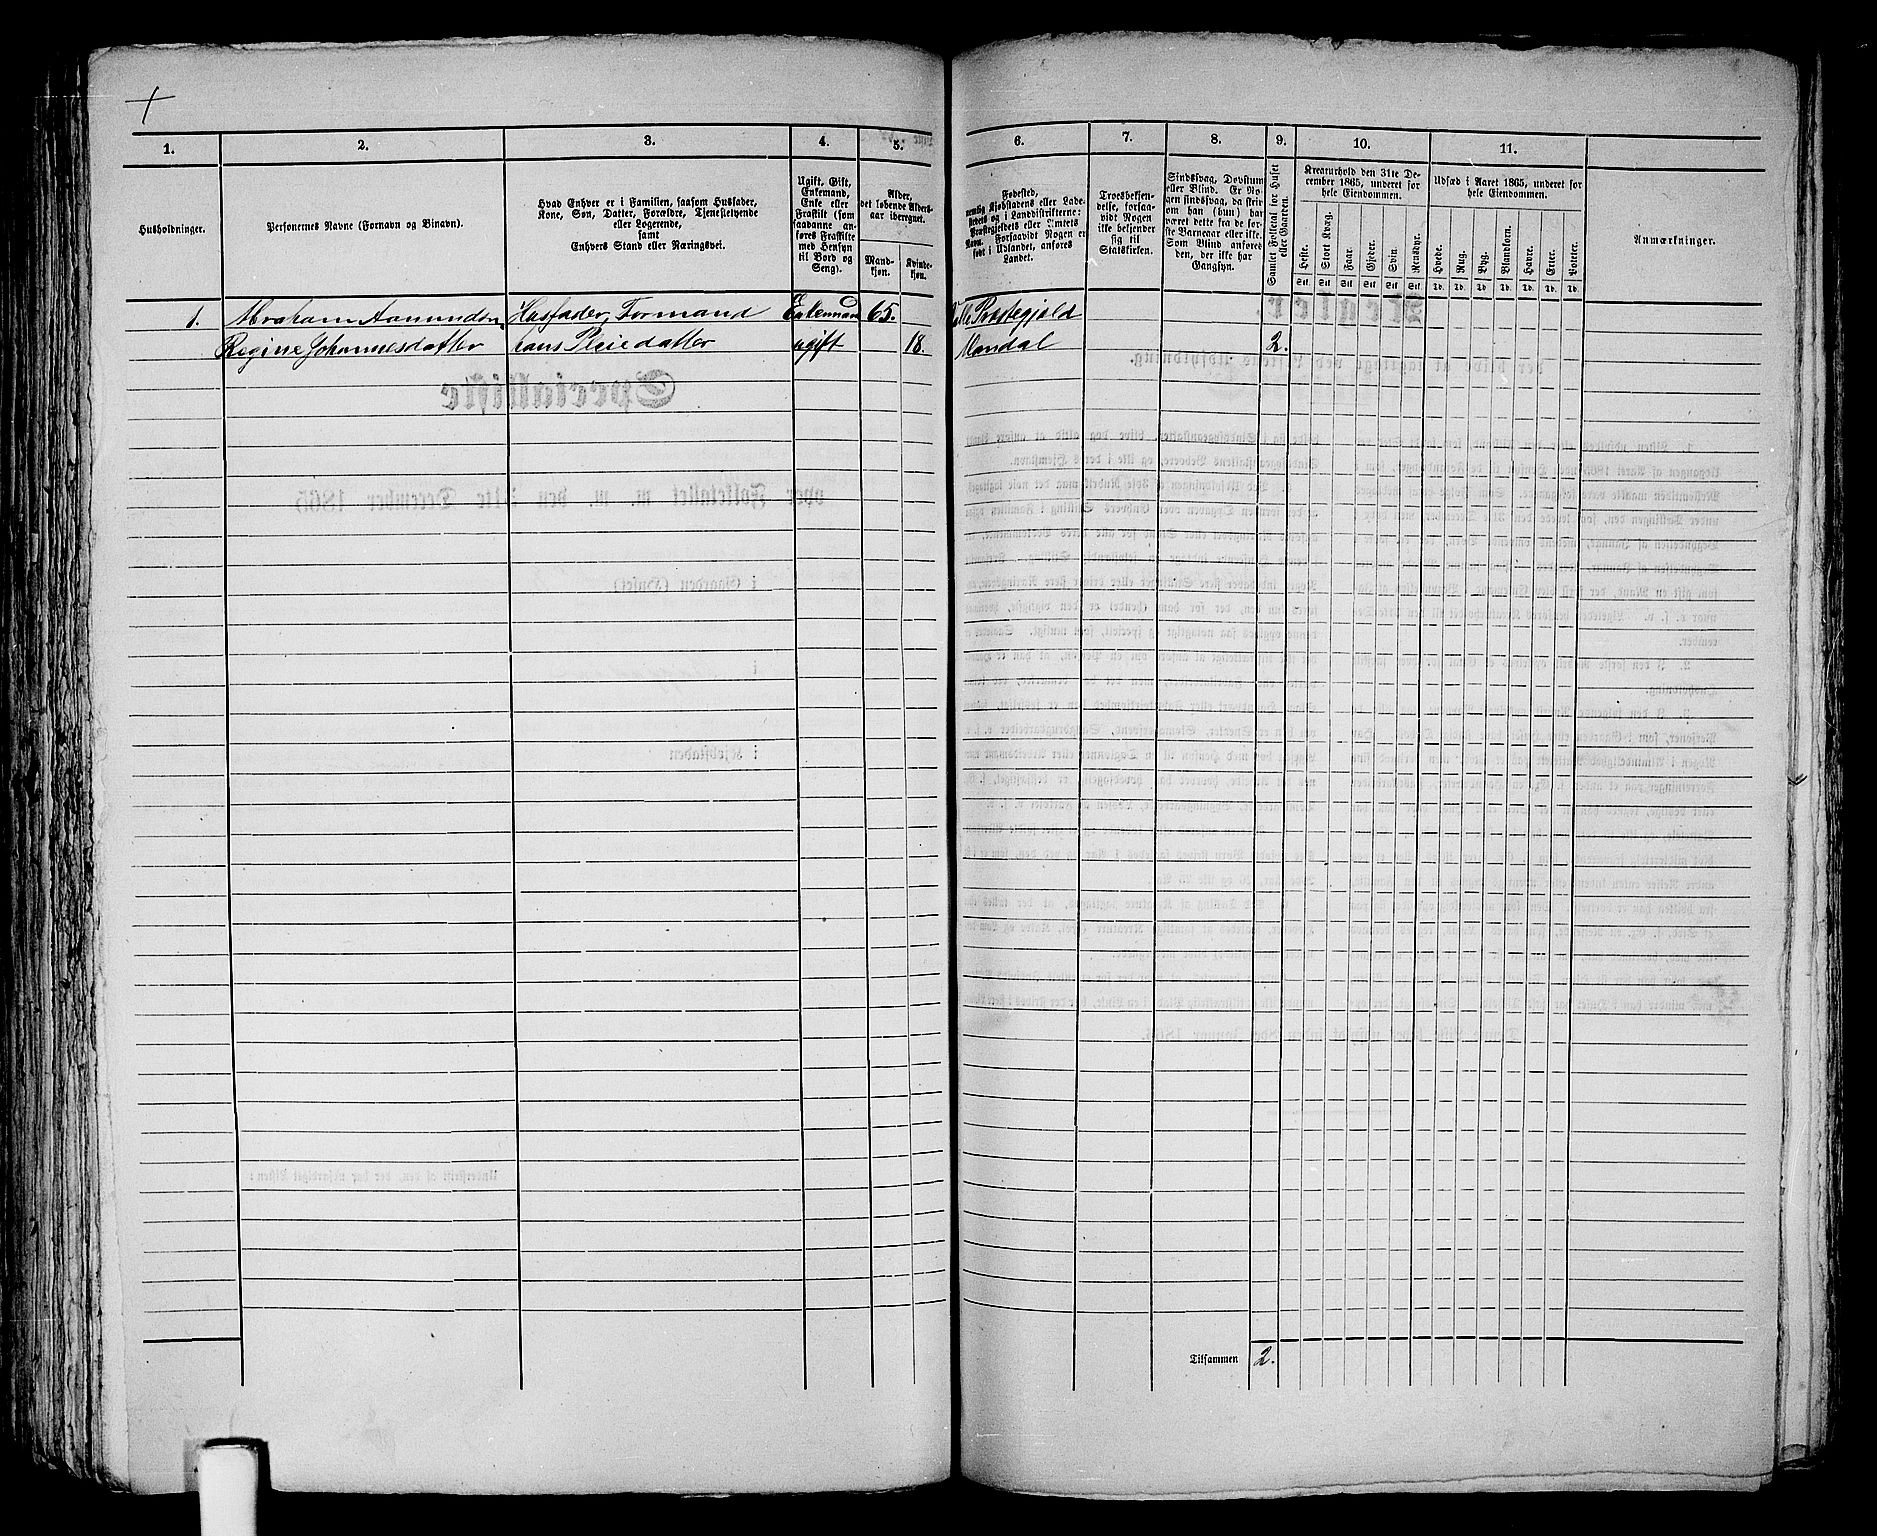 1.
2.
3.
4.
5.
6.
7.
8.
9.
10.
11.
Husholdninger.
Personernes Navne (Fornavn og Binavn).
Hvad Enhver er i Familien, saasom Husfader,
Kone, Søn, Datter, Forældre, Tjenestetyende
eller Logerende,
samt
Enhvers Stand eller Næringsvei.
Ugift, Gift,
Enkemand,
Enke eller
Fraskilt (som
saadanne an-
føres Fraskilte
med Hensyn
til Bord og
Seng).
Alder,
det løbende Alders-
aar iberegnet.
Mand-
kjøn.
Kvinde-
kjøn.
Fødested,
nemlig Kjøbstadens eller Lade-
stedets og i Landdistrikterne:
Præstegjeldets eller Amtets
Navn. Forsaavidt Nogen er
født i Udlandet, anføres
Landet.
Troesbekjen-
delse, forsaa-
vidt Nogen
ikke bekjender
sig til
Statskirken.
Sindssvag, Døvstum
eller Blind. Er No-
gen sindssvag, da skriv
om han (hun) har
været dette fra de før-
ste Barneaar eller ikke.
Som Blind anføres
den, der ikke har
Gangsyn.
Samlet Folketal for Huset
eller Gaarden.
Kreaturhold den 31te De-
cember 1865, underet for
hele Eiendommen.
Heste.
Stort Kvæg.
Faar.
Gjeder.
Svin.
Rensdyr.
Stk. Stk. Stk. Stk. Stk. Stk.
Udsæd i Aaret 1865, underet for
hele Eiendommen.
Hvede.
Rug.
Byg.
Blandkorn.
Havre.
Erter.
Poteter.
Td. Td. Td. Td. Td. Td. Td.
Anmærkninger.
1. Abraham Aanundsen Husfader, Formand Enkemand 65. Valle Præstegjeld
Regine Johannesdatter hans Pleiedatter ugift 18. Mandal 2.
Tilsammen 2.